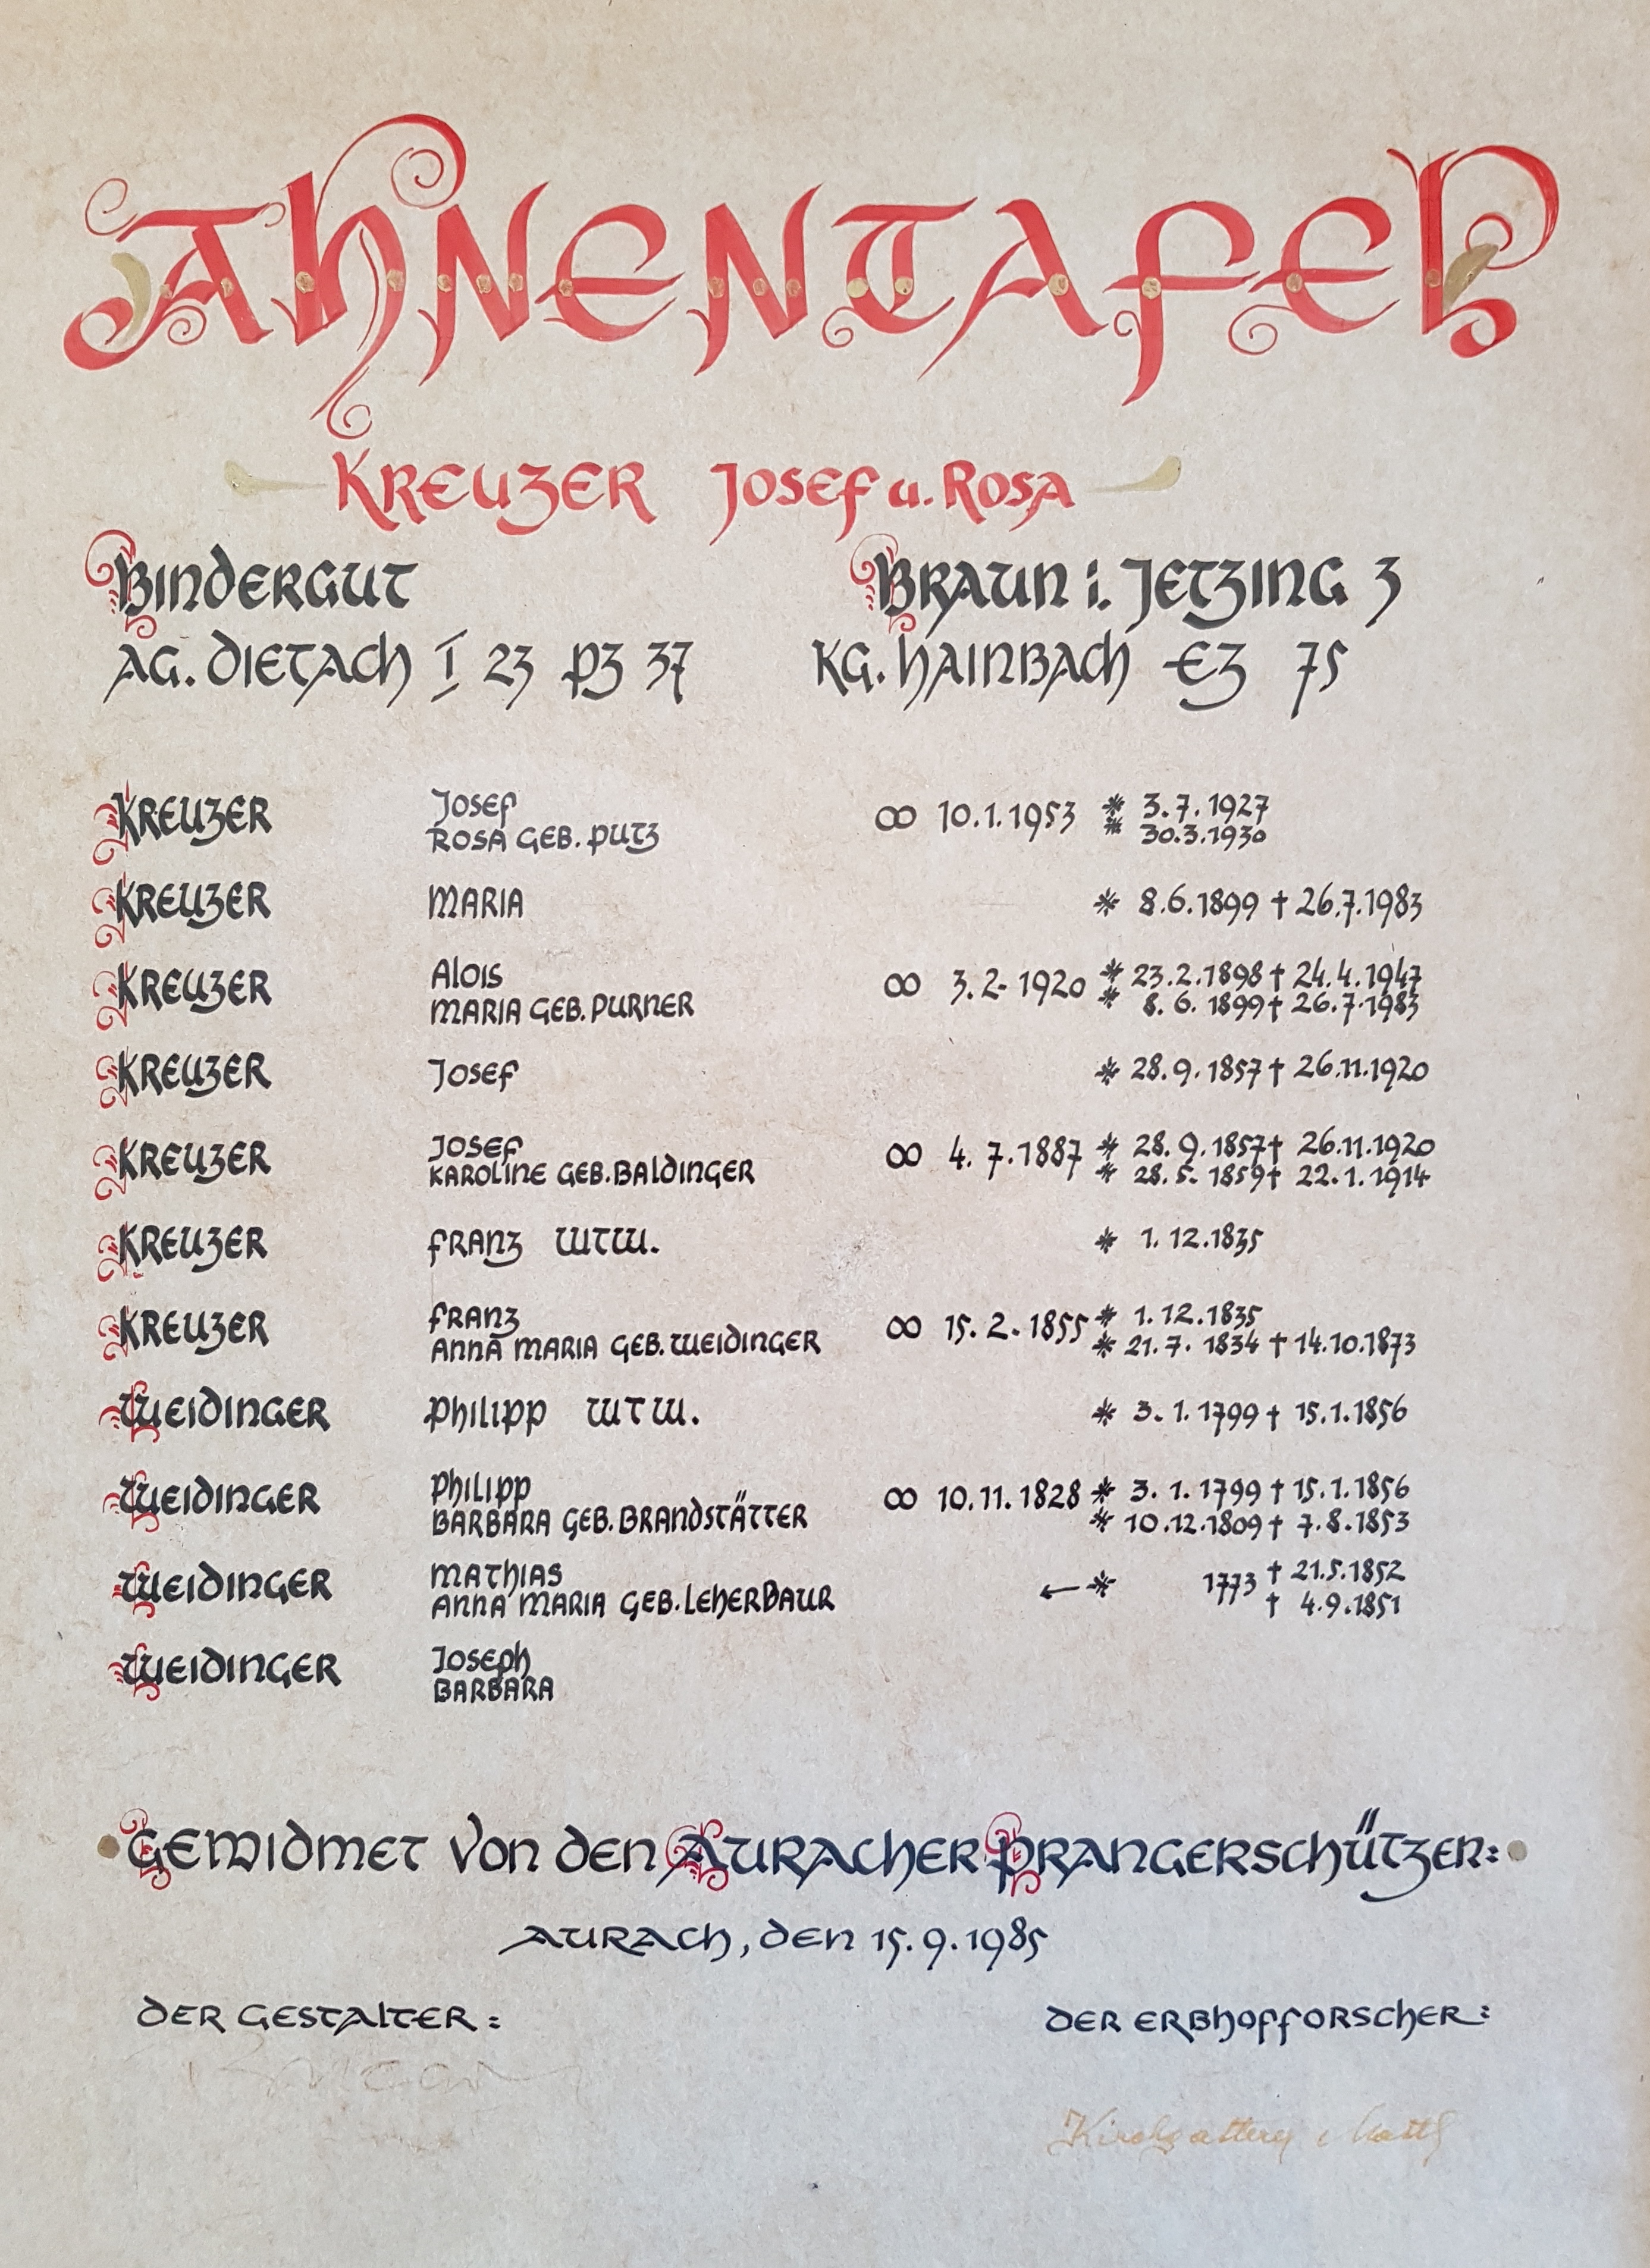 AHNENTAFEL
KREUZER JOSEF u. ROSA
BINDERGUT BRAUN i. JETZING 3
AG. DIETACH I 23 PZ 37 KG. HAINBACH EZ 75
KREUZER JOSEF ∞ 10.1.1953 * 3.7.1927
ROSA GEB. PUTZ * 30.3.1930
KREUZER MARIA * 8.6.1899 † 26.7.1983
KREUZER ALOIS ∞ 3.2.1920 * 23.2.1898 † 24.4.1947
MARIA GEB. PURNER * 8.6.1899 † 26.7.1983
KREUZER JOSEF * 28.9.1857 † 26.11.1920
KREUZER JOSEF ∞ 4.7.1887 * 28.9.1857 † 26.11.1920
KAROLINE GEB. BALDINGER * 28.5.1859 † 22.1.1914
KREUZER FRANZ WTW. * 1.12.1835
KREUZER FRANZ ∞ 15.2.1855 * 1.12.1835
ANNA MARIA GEB. WEIDINGER * 21.7.1834 † 14.10.1873
WEIDINGER PHILIPP WTW. * 3.1.1799 † 15.1.1856
WEIDINGER PHILIPP ∞ 10.11.1828 * 3.1.1799 † 15.1.1856
BARBARA GEB. BRANDSTÄTTER * 10.12.1809 † 7.8.1853
WEIDINGER MATHIAS ← * 1773 † 21.5.1852
ANNA MARIA GEB. LEHERBAUR † 4.9.1851
WEIDINGER JOSEPH
BARBARA
GEWIDMET VON DEN AURACHER PRANGERSCHÜTZEN:
AURACH, DEN 15.9.1985
DER GESTALTER: DER ERBHOFFORSCHER: